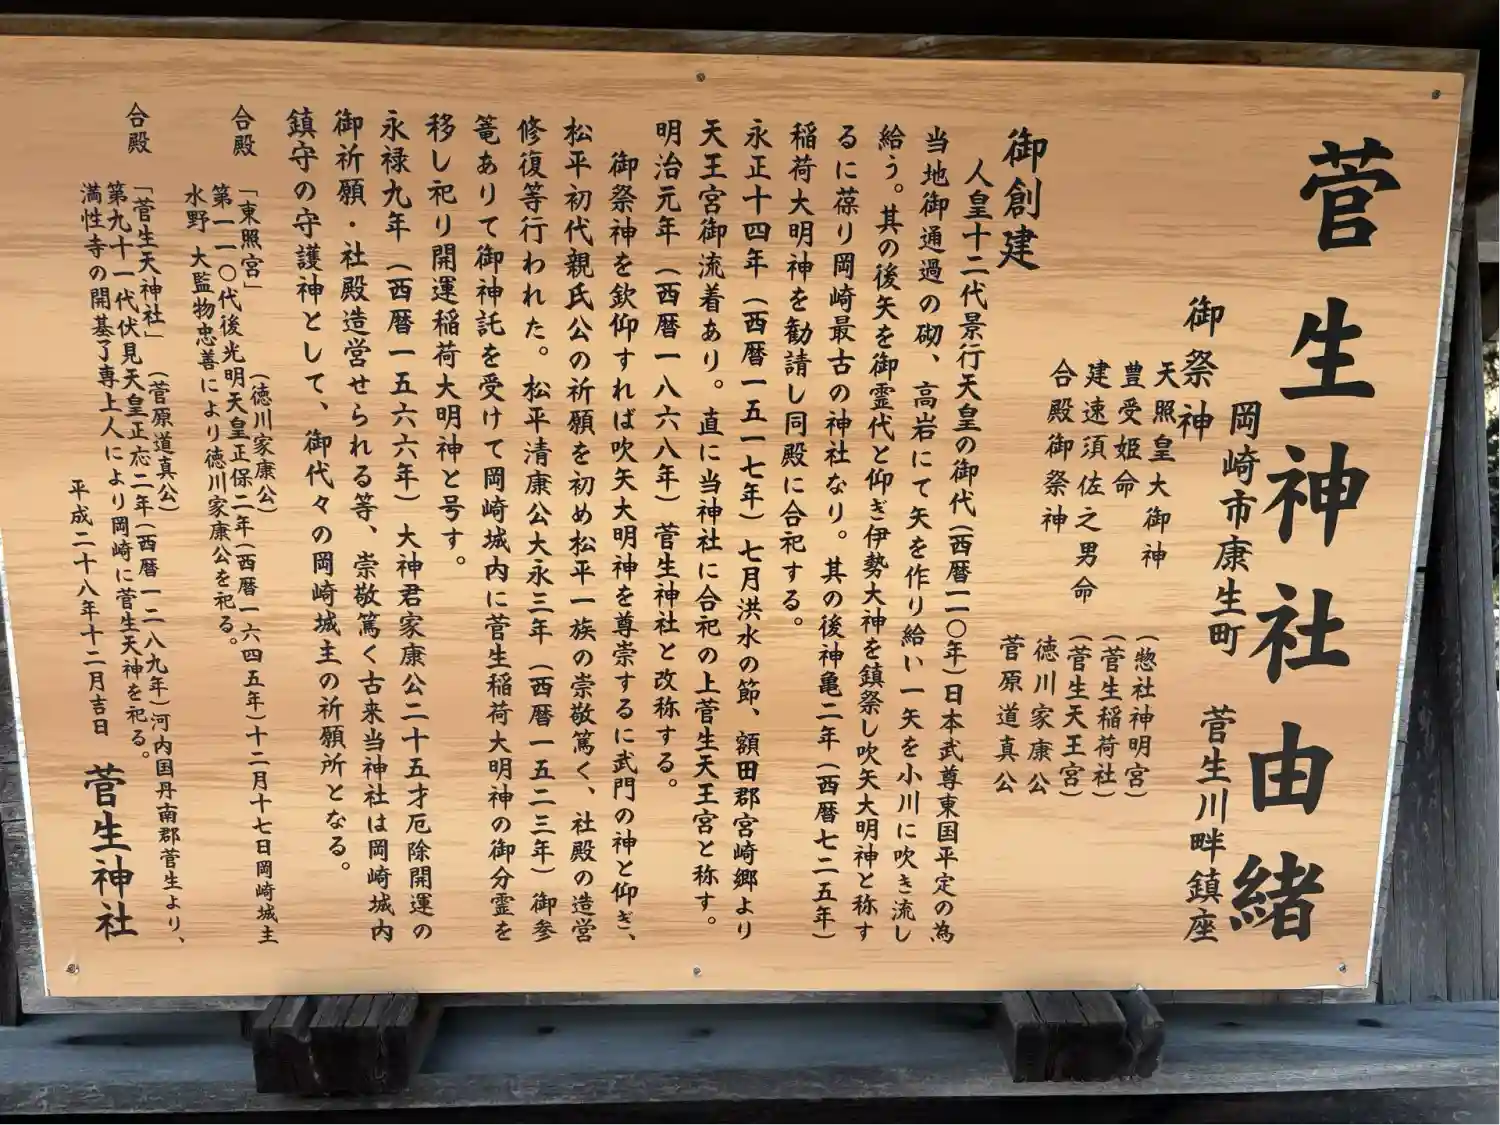 菅生神社由緒
岡崎市康生町 菅生川畔鎮座
御祭神
天照皇大御神 (惣社神明宮)
豊受姫命 (菅生稲荷社)
建速須佐之男命 (菅生天王宮)
合殿御祭神 徳川家康公
菅原道真公
御創建
人皇十二代景行天皇の御代(西暦一一〇年)日本武尊東国平定の為
当地御通過の砌、高岩にて矢を作り給い一矢を小川に吹き流し
給う。其の後矢を御霊代と仰ぎ伊勢大神を鎮祭し吹矢大明神と称す
るに葆り岡崎最古の神社なり。其の後神亀二年(西暦七二五年)
稲荷大明神を勧請し同殿に合祀する。
永正十四年(西暦一五一七年)七月洪水の節、額田郡宮崎郷より
天王宮御流着あり。直に当神社に合祀の上菅生天王宮と称す。
明治元年(西暦一八六八年)菅生神社と改称する。
御祭神を欽仰すれば吹矢大明神を尊崇するに武門の神と仰ぎ、
松平初代親氏公の祈願を初め松平一族の崇敬篤く、社殿の造営
修復等行われた。松平清康公大永三年(西暦一五二三年)御参
篭ありて御神託を受けて岡崎城内に菅生稲荷大明神の御分霊を
移し祀り開運稲荷大明神と号す。
永禄九年(西暦一五六六年)大神君家康公二十五才厄除開運の
御祈願・社殿造営せられる等、崇敬篤く古来当神社は岡崎城内
鎮守の守護神として、御代々の岡崎城主の祈願所となる。
合殿 「東照宮」(徳川家康公)
第一一〇代後光明天皇正保二年(西暦一六四五年)十二月十七日岡崎城主
水野 大監物忠善により徳川家康公を祀る。
合殿 「菅生天神社」(菅原道真公)
第九十一代伏見天皇正応二年(西暦一二八九年)河内国丹南郡菅生より、
満性寺の開基了専上人により岡崎に菅生天神を祀る。
平成二十八年十二月吉日 菅生神社